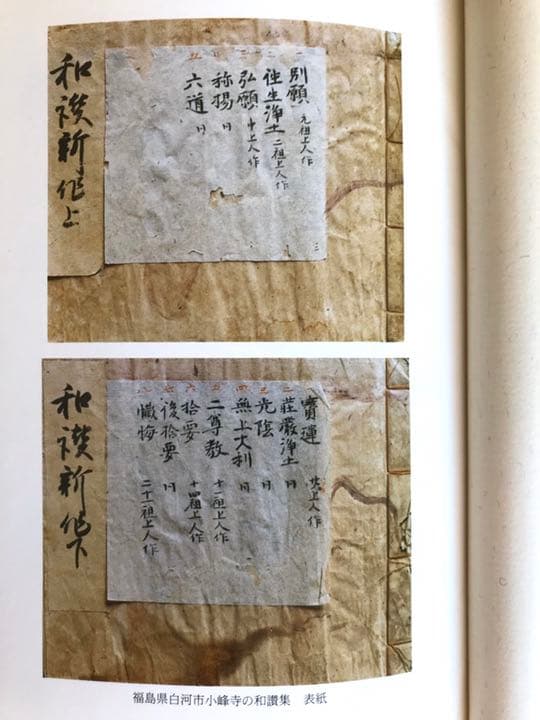 和讃新作上
別願 元祖上人作
往生浄土 二祖上人作
弘願 中上人作
称揚 同
六道 同
和讃新作下
寶蓮 上人作
莊嚴浄土 同
光陰 同
無上大利 同
二尊教 十一祖上人作
拾要 十四祖上人作
後拾要 同
懺悔 二十一祖上人作
福島県白河市小峰寺の和讃集 表紙